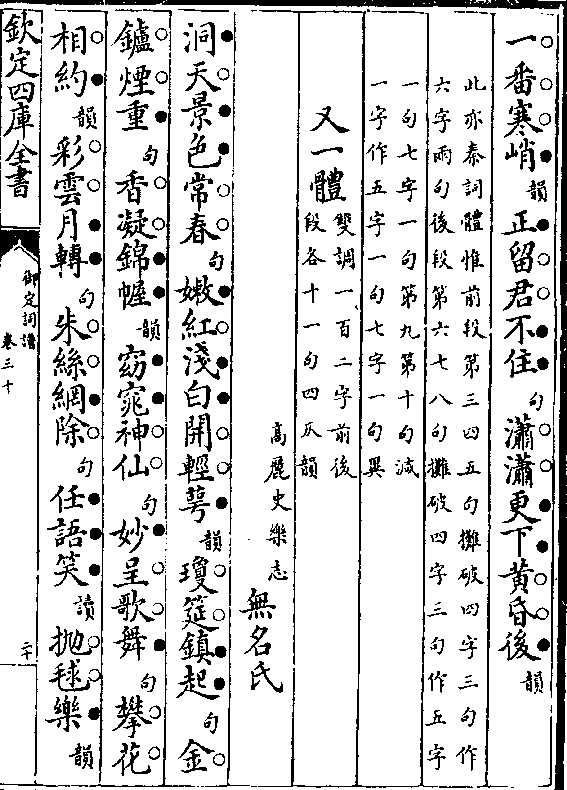 一番寒峭韻正留君不住句瀟瀟更下黄昏後韻
此亦秦詞體惟前段第三四五句攤破四字三句作
六字兩句後段第六七八句攤破四字三句作五字
一句七字一句第九第十句減
一字作五字一句七字一句異
又一體
雙調一百二字前後
段各十一句四仄韻
高麗史樂志
無名氏
洞天景色常春句嫩紅淺白開輕萼韻瓊筵鎮起句金
鑪煙重句香凝錦幄韻窈窕神仙句妙呈歌舞句攀花
相約韻彩雲月轉句朱絲網除句任語笑讀抛毬樂韻
欽定四庫全書
御定詞譜
卷三十
二十